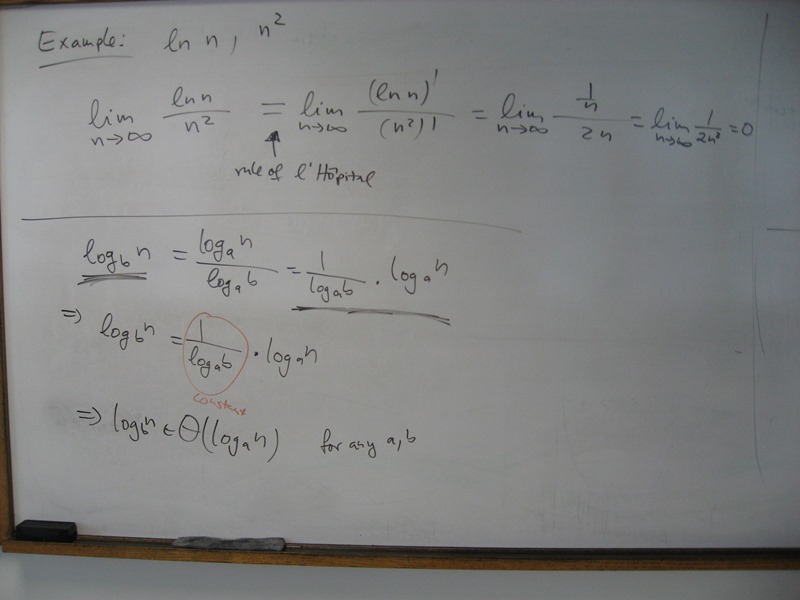 Example: ln n, n²
lim n→∞ ln n / n² = lim n→∞ (ln n)' / (n²)' = lim n→∞ (1/n) / 2n = lim n→∞ 1/2n² = 0
rule of l'Hôpital
log_b n = log_a n / log_a b = 1 / log_a b · log_a n
⇒ log_b n = 1 / log_a b · log_a n
constant
⇒ log_b n ∈ Θ(log_a n) for any a, b